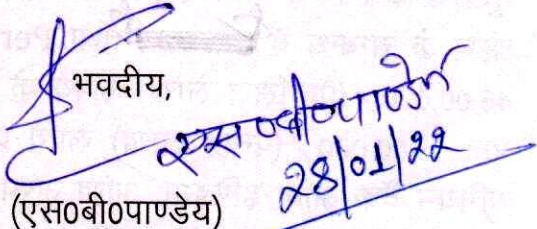 भवदीय,
एस०बी०पाण्डेय
28/01/22
(एस0बी0पाण्डेय)